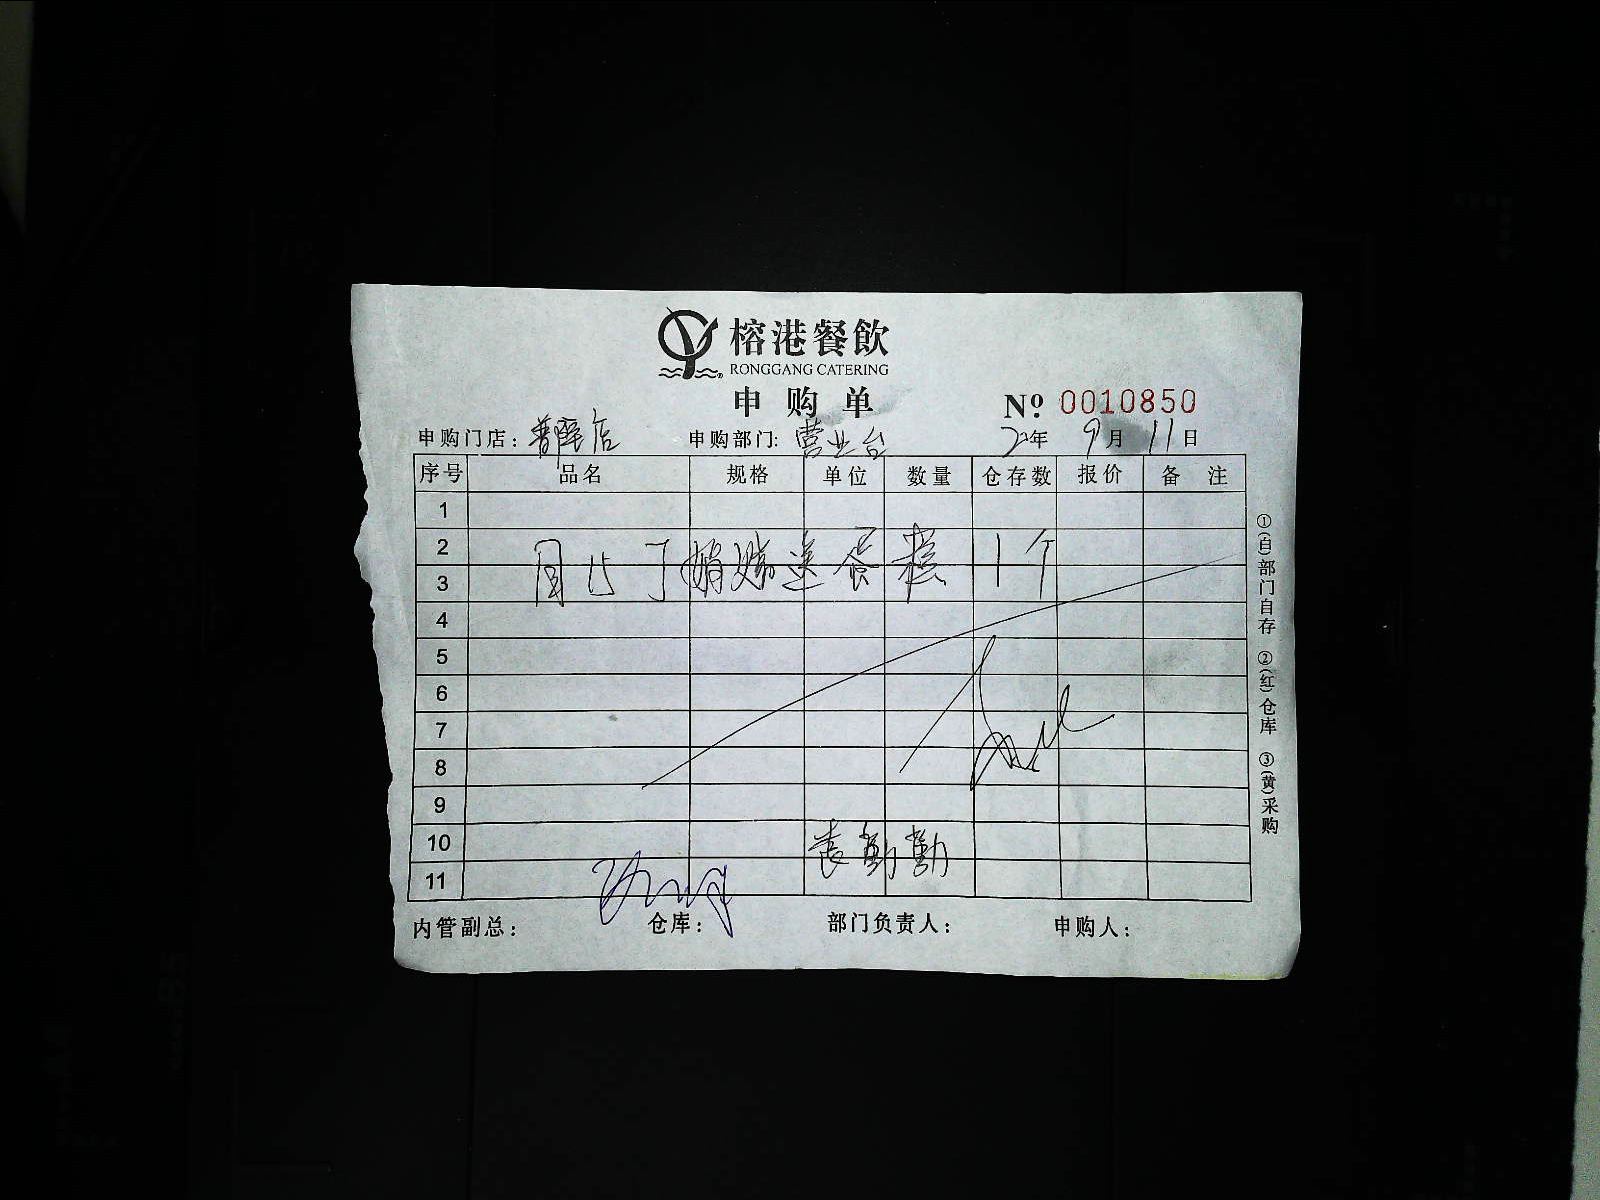 榕港餐飲
RONGGANG CATERING
申购单
№ 0010850
申购门店：普晖店 申购部门：营业台 22年 9月 11日
序号 品名 规格 单位 数量 仓存数 报价 备注
1
2
3 赠送蛋糕 1个
4
5
6
7
8
9
10 袁勤勤
11
内管副总： 仓库： 部门负责人： 申购人：
①(白)部门自存 ②(红)仓库 ③(黄)采购